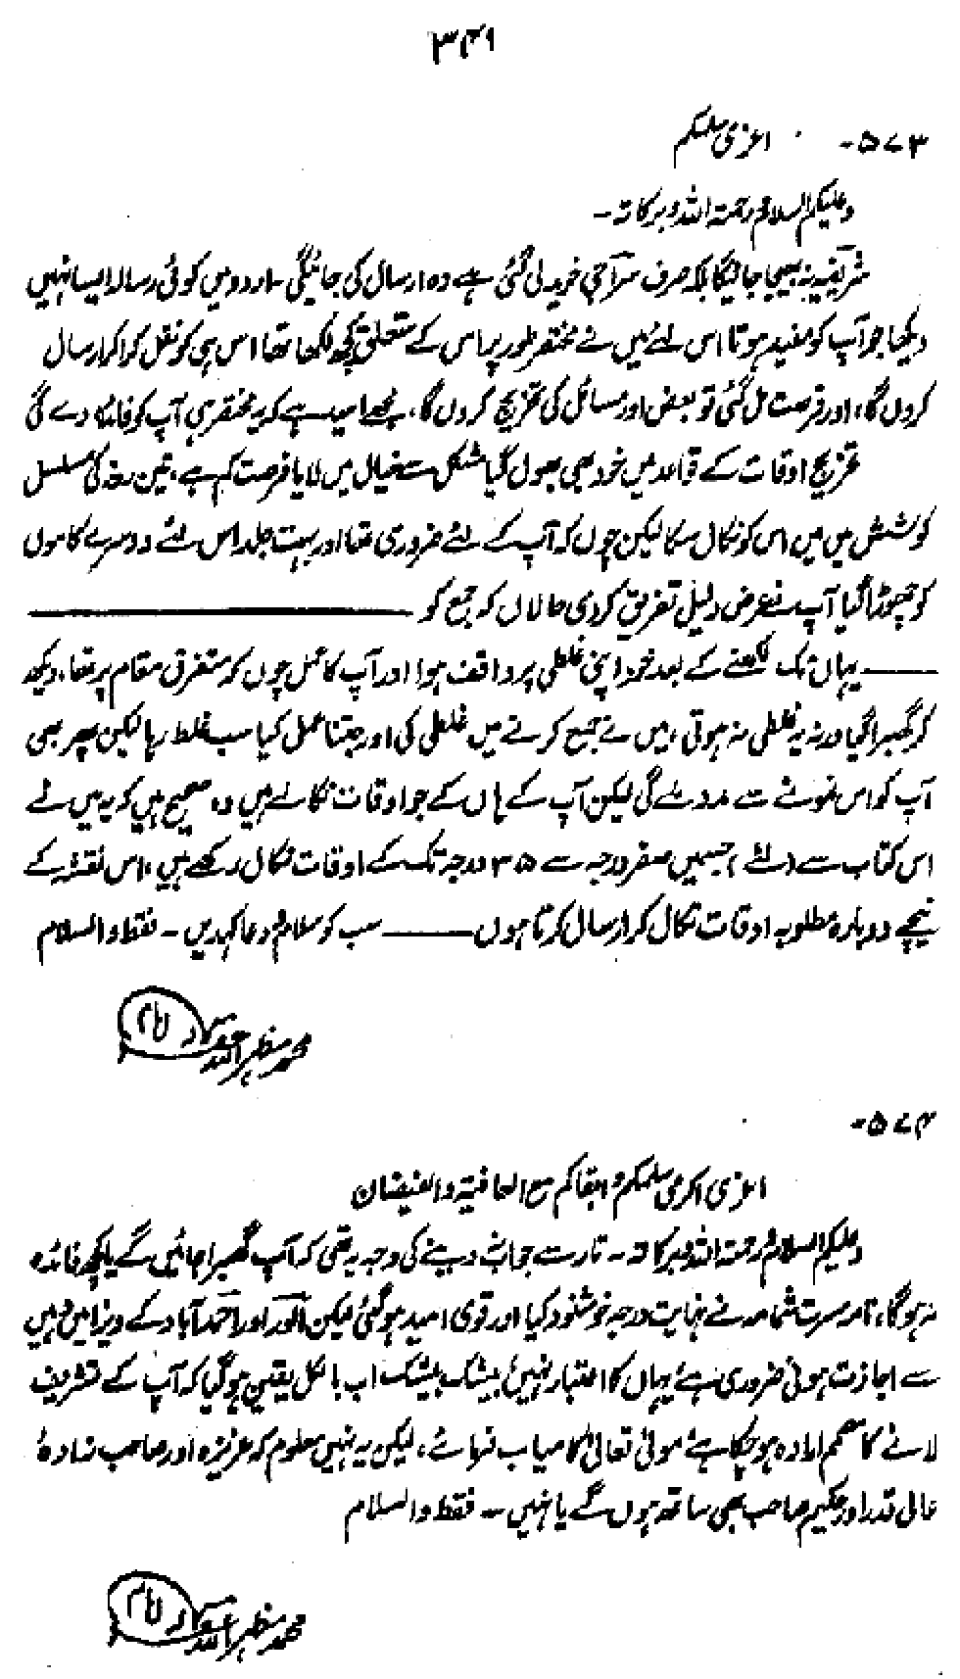 ۳۴۹
۵۷۳- اعزی سلمکم
وعلیکم السلام ورحمتہ اللہ وبرکاتہ -
شریفیہ نہ بھیجا جائیگا بلکہ صرف سراجی خریدلی گئی ہے وہ ارسال کی جائیگی۔ اردو میں کوئی رسالہ ایسا نہیں
دیکھا جو آپ کو مفید ہوتا اس لئے میں نے مختصر طور پر اس کے متعلق کچھ لکھا تھا اس ہی کو نقل کرا کر ارسال
کروں گا، اور فرصت مل گئی تو بعض اور مسائل کی تخریج کروں گا، مجھے امید ہے کہ یہ مختصر ہی آپ کو فائدہ دے گی
تخریج اوقات کے قواعد میں خود بھی بھول گیا مشکل سے خیال میں لایا فرصت کم ہے، تین روز کی مسلسل
کوشش میں میں اس کو نکال سکا لیکن چوں کہ آپ کے لئے ضروری تھا اور بہت جلد اس لئے دوسرے کاموں
کو چھوڑا گیا آپ نے عرض دلیل تفریق کردی حالاں کہ جمع کو ————
—— یہاں تک لکھنے کے بعد خود اپنی غلطی پر واقف ہوا اور آپ کا عمل چوں کہ متفرق مقام پر تھا، دیکھ
کر گھبرا گیا ورنہ یہ غلطی نہ ہوتی، میں نے جمع کرنے میں غلطی کی اور جتنا عمل کیا سب غلط رہا لیکن پھر بھی
آپ کو اس نمونے سے مدد ملے گی لیکن آپ کے ہاں کے جو اوقات نکالے ہیں وہ صحیح ہیں کہ یہ میں نے
اس کتاب سے (لئے) جسمیں صفر درجہ سے ۳۵ درجہ تک کے اوقات نکال رکھے ہیں، اس نقشہ کے
نیچے دوبارہ مطلوبہ اوقات نکال کر ارسال کرتا ہوں —— سب کو سلام و دعا کہدیں - فقط والسلام
محمد مظہر اللہ
۵۷۴-
اعزی اکرمی سلمکم وابقاکم مع العافیۃ والفیضان
وعلیکم السلام ورحمتہ اللہ وبرکاتہ - تار سے جواب نہ دینے کی وجہ یہ تھی کہ آپ گھبرا جائیں گے یا کچھ فائدہ
نہ ہوگا، نامہ مسرت شمامہ نے نہایت درجہ خوشنود کیا اور قوی امید ہوگئی لیکن الور اور احمد آباد کے ویزا میں وہیں
سے اجازت ہونی ضروری ہے یہاں کا اعتبار نہیں بیشک بیشک اب بالکل یقین ہو گیا کہ آپ کے تشریف
لانے کا مصمم ارادہ ہو چکا ہے مولیٰ تعالیٰ کامیاب فرمائے، لیکن یہ نہیں معلوم کہ عزیزہ اور صاحب زادۂ
عالی قدر اور حکیم صاحب بھی ساتھ ہوں گے یا نہیں - فقط والسلام
محمد مظہر اللہ